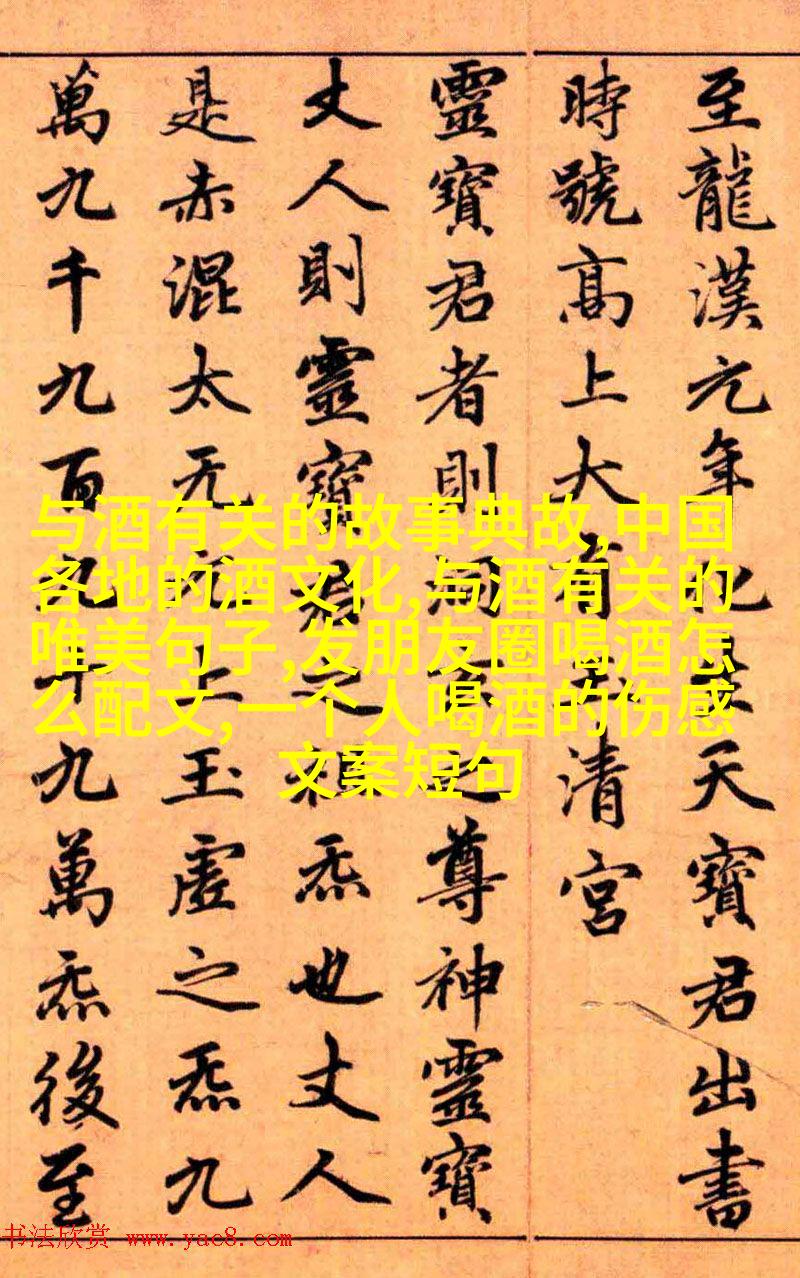 至龍漢元年化生天寶君出書
時號高上大有玉清宮
靈寶君者則洞玄之尊神靈寶
丈人則靈寶君之祖炁也丈人
是赤混太无元上玉虛之炁九
萬九千九百九十九萬炁後至
与酒有关的故事典故,中国
各地的酒文化,与酒有关的
唯美句子,发朋友圈喝酒怎
么配文,一个人喝酒的伤感
文案短句
书法欣赏 www.yac8.com